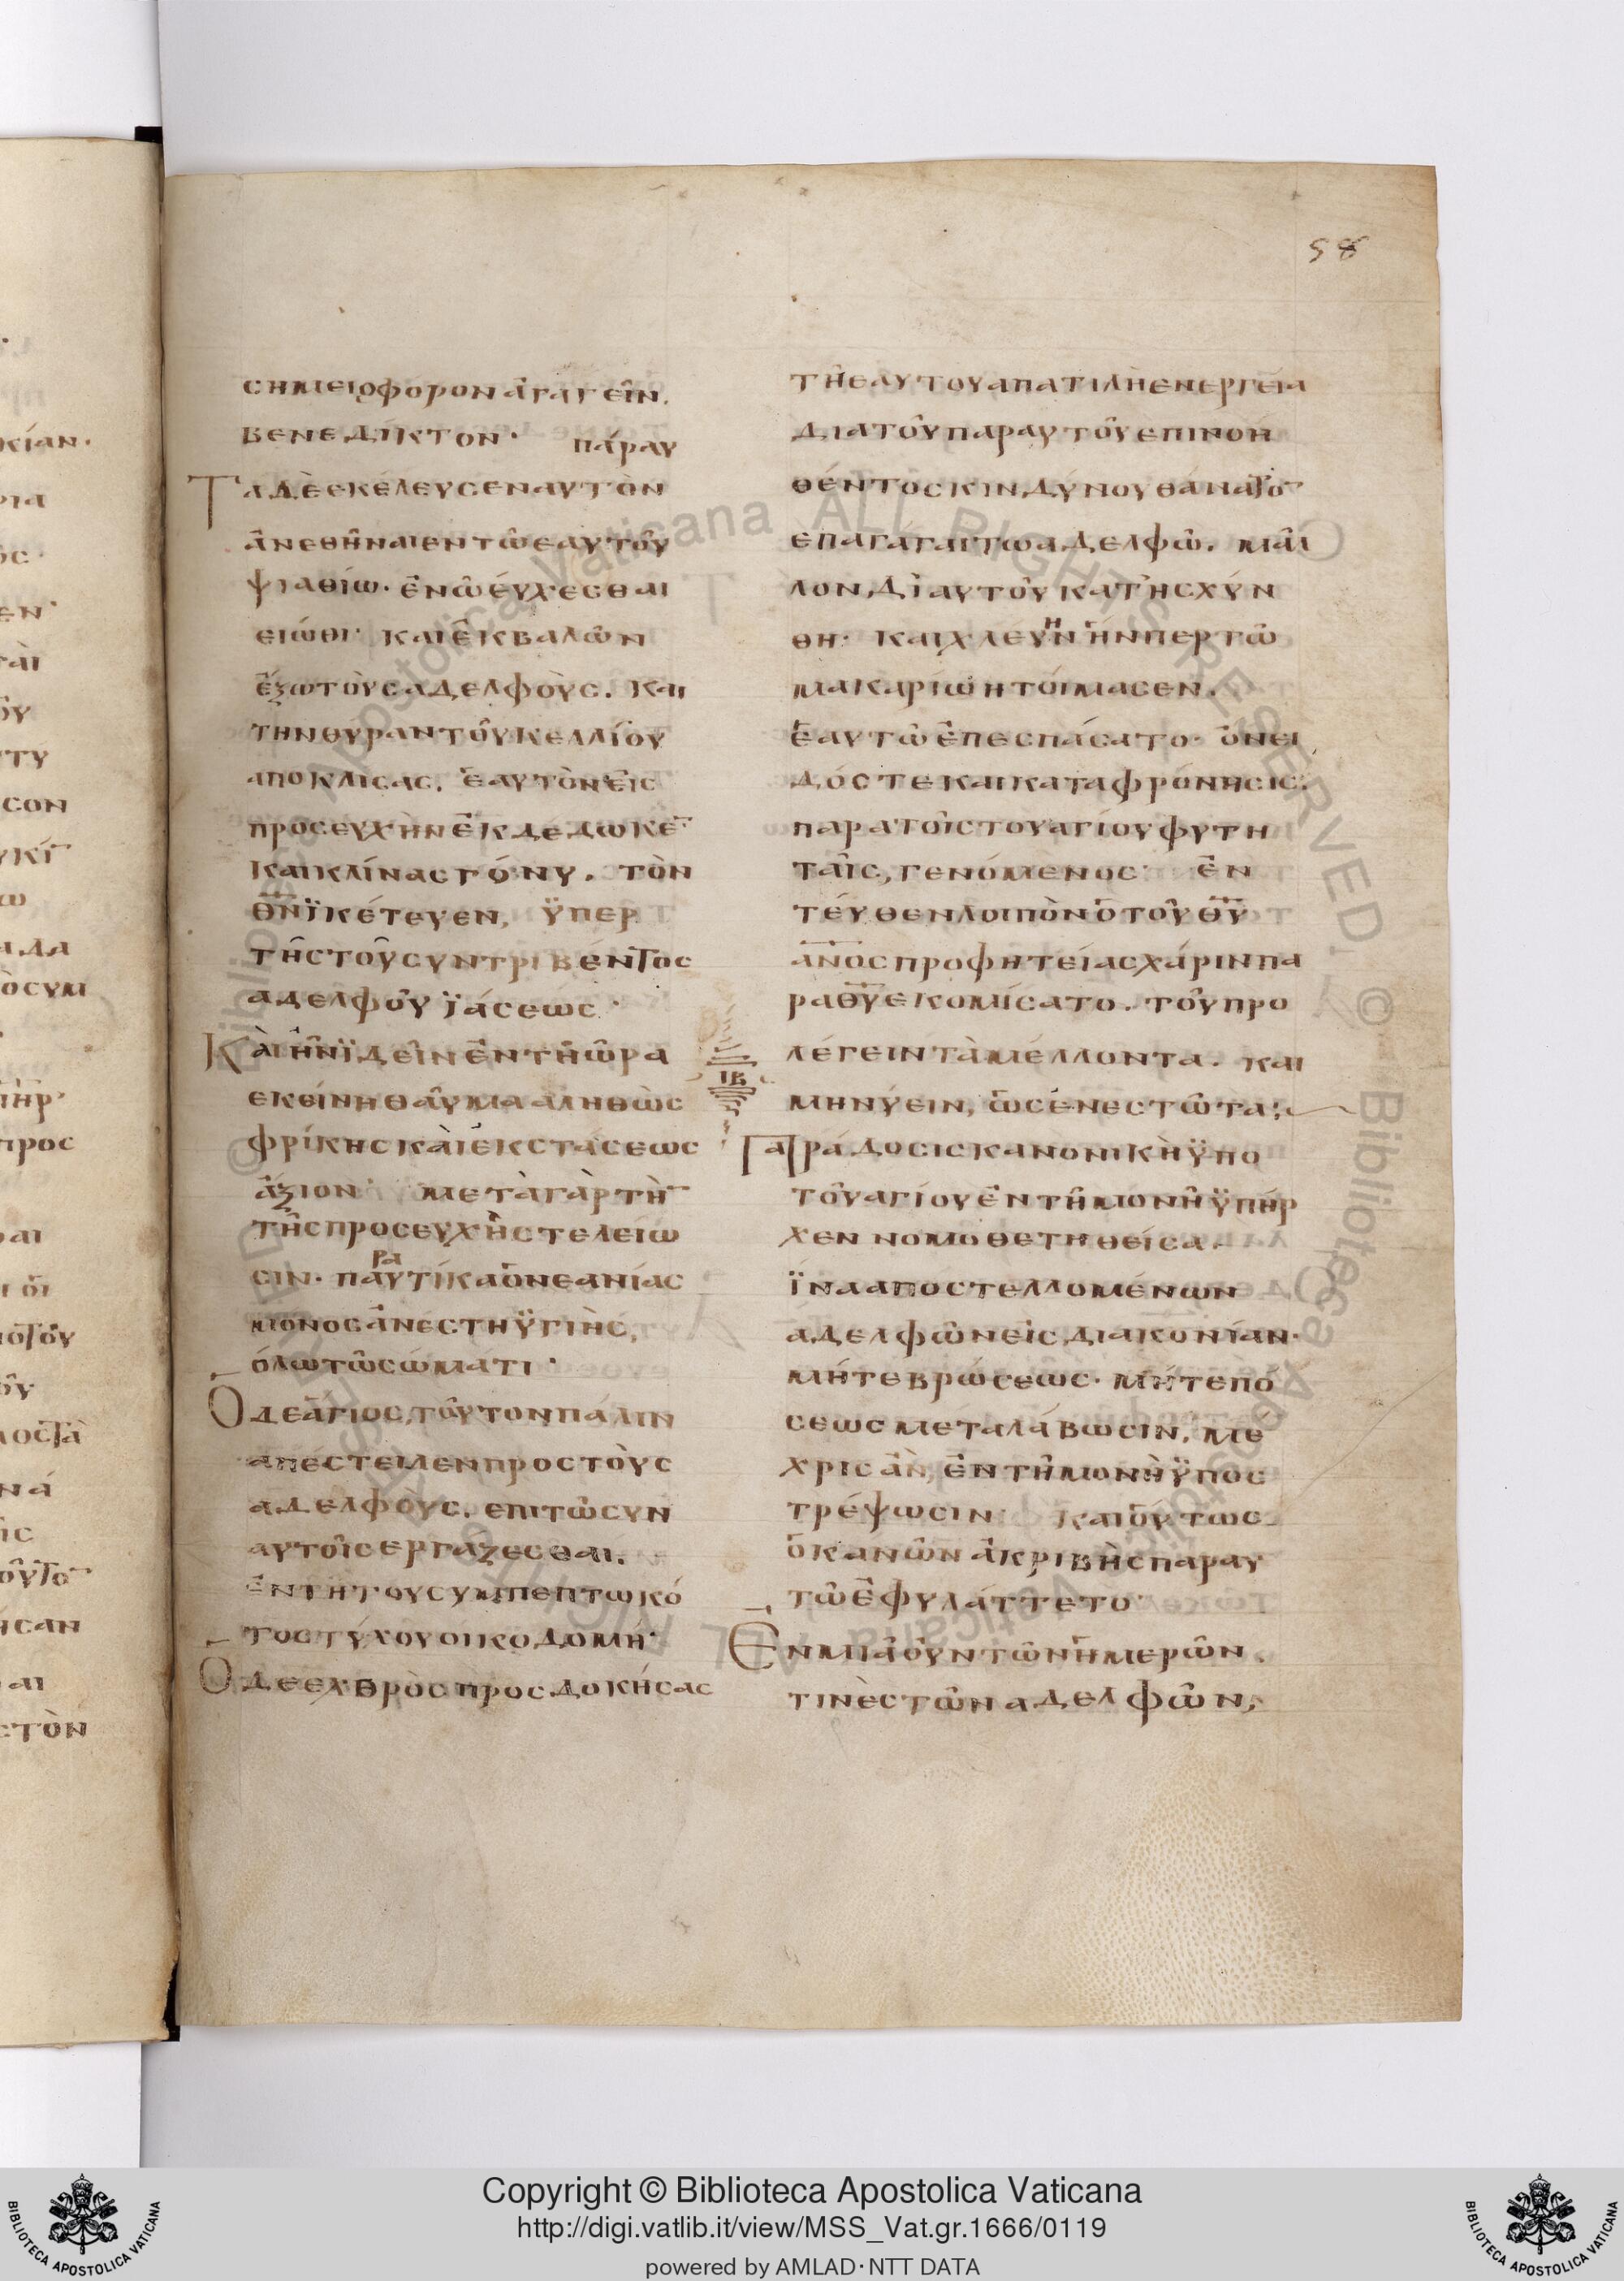 58
σημειοφορον ἀγαγεῖν.
βενεδίκτον· πάραυ
Τα δὲ εκέλευσεν αυτὸν
ἀνεθῆναι εν τῶ εαυτοῦ
ψιαθίω· ἐν ῶ έυχεσθαι
ειώθι· και ἐκβαλὼν
ἔξω τοὺς αδελφοὺς. και
την θυραν τοῦ κελλίου
αποκλισας. ἑαυτὸν εἰς
προσευχὴν ἐκδεδωκε̄
και κλίνας γόνυ. τὸν
θ̅ν̅ ϊκέτευεν, ϋπερ
τῆς τοῦ συντριβέντος
αδελφοῦ ϊάσεως·
Κὰι ῆν ϊδεῖν ἐν τῆ ὥρα
εκείνη θαῦμα αληθὼς
φρίκης κὰι ἐκστάσεως
ἄξιον· μετὰ γὰρ τὴ̄
τῆς προσευχῆς τελείω
σιν· παραυτίκα ὁ νεανίας
μονος ἀνέστη ϋγιὴς,
όλω τῶ σώματι·
Ὁ δε ἅγιος, τοῦτον πάλιν
απέστειλεν προς τοὺς
αδελφοὺς. επι τῶ συν
αυτοῖς εργαζεσθαι.
ἐν τῆ του συμπεπτωκό
τος τύχου οικοδομή·
Ὁ δε εχθρὸς προς δοκήσας
τῆ εαυτου απατιλῆ ενεργεία
δια τοῦ παραυτοῦ επινοη
θέντος κινδύνου θάνατο̄
ἐπαγάγαι τω αδελφῶ. μᾶλ
λον, δὶ αυτοῦ κατῃσχύν
θη· και χλευην ἥν περ τῶ
μακαρίω ητοίμασεν.
ἑαυτῶ ἐπεσπάσατο· ὀνει
δός τε και καταφρόνησις.
παρα τοῖς του αγίου φυτη
ταῖς, γενόμενος· ἐν
τέυθεν λοιπὸν ὁ τοῦ θ̅υ̅
α̅ν̅ο̅ς προφητείας χάριν πα
ρα θ̅υ̅ εκομίσατο. τοῦ προ
λέγειν τὰ μέλλοντα. και
μηνύειν, ὡς ἐνεστῶτα;
ΙΒ
Παράδοσις κανονικὴ ϋπο
τοῦ αγίου ἐν τῆ μονῆ ϋπῆρ
χεν νομοθετηθείσα.
ϊνα αποστελλομένων
αδελφῶν εἰς διακονίαν·
μήτε βρώσεως· μήτε πό
σεως μεταλάβωσιν, μέ
χρις ἂν, ἐν τῆ μονὴ ϋποσ
τρέψωσιν· και οὕτως
ὁ κανὼν ἀκριβὴς παραυ
τῶ ἐφυλάττετο·
Ἐν μιᾶ οῦν τῶν ἡμερῶν.
τινὲς τῶν αδελφῶν,
Copyright © Biblioteca Apostolica Vaticana
http://digi.vatlib.it/view/MSS_Vat.gr.1666/0119
powered by AMLAD·NTT DATA
BIBLIOTECA APOSTOLICA VATICANA
BIBLIOTECA APOSTOLICA VATICANA